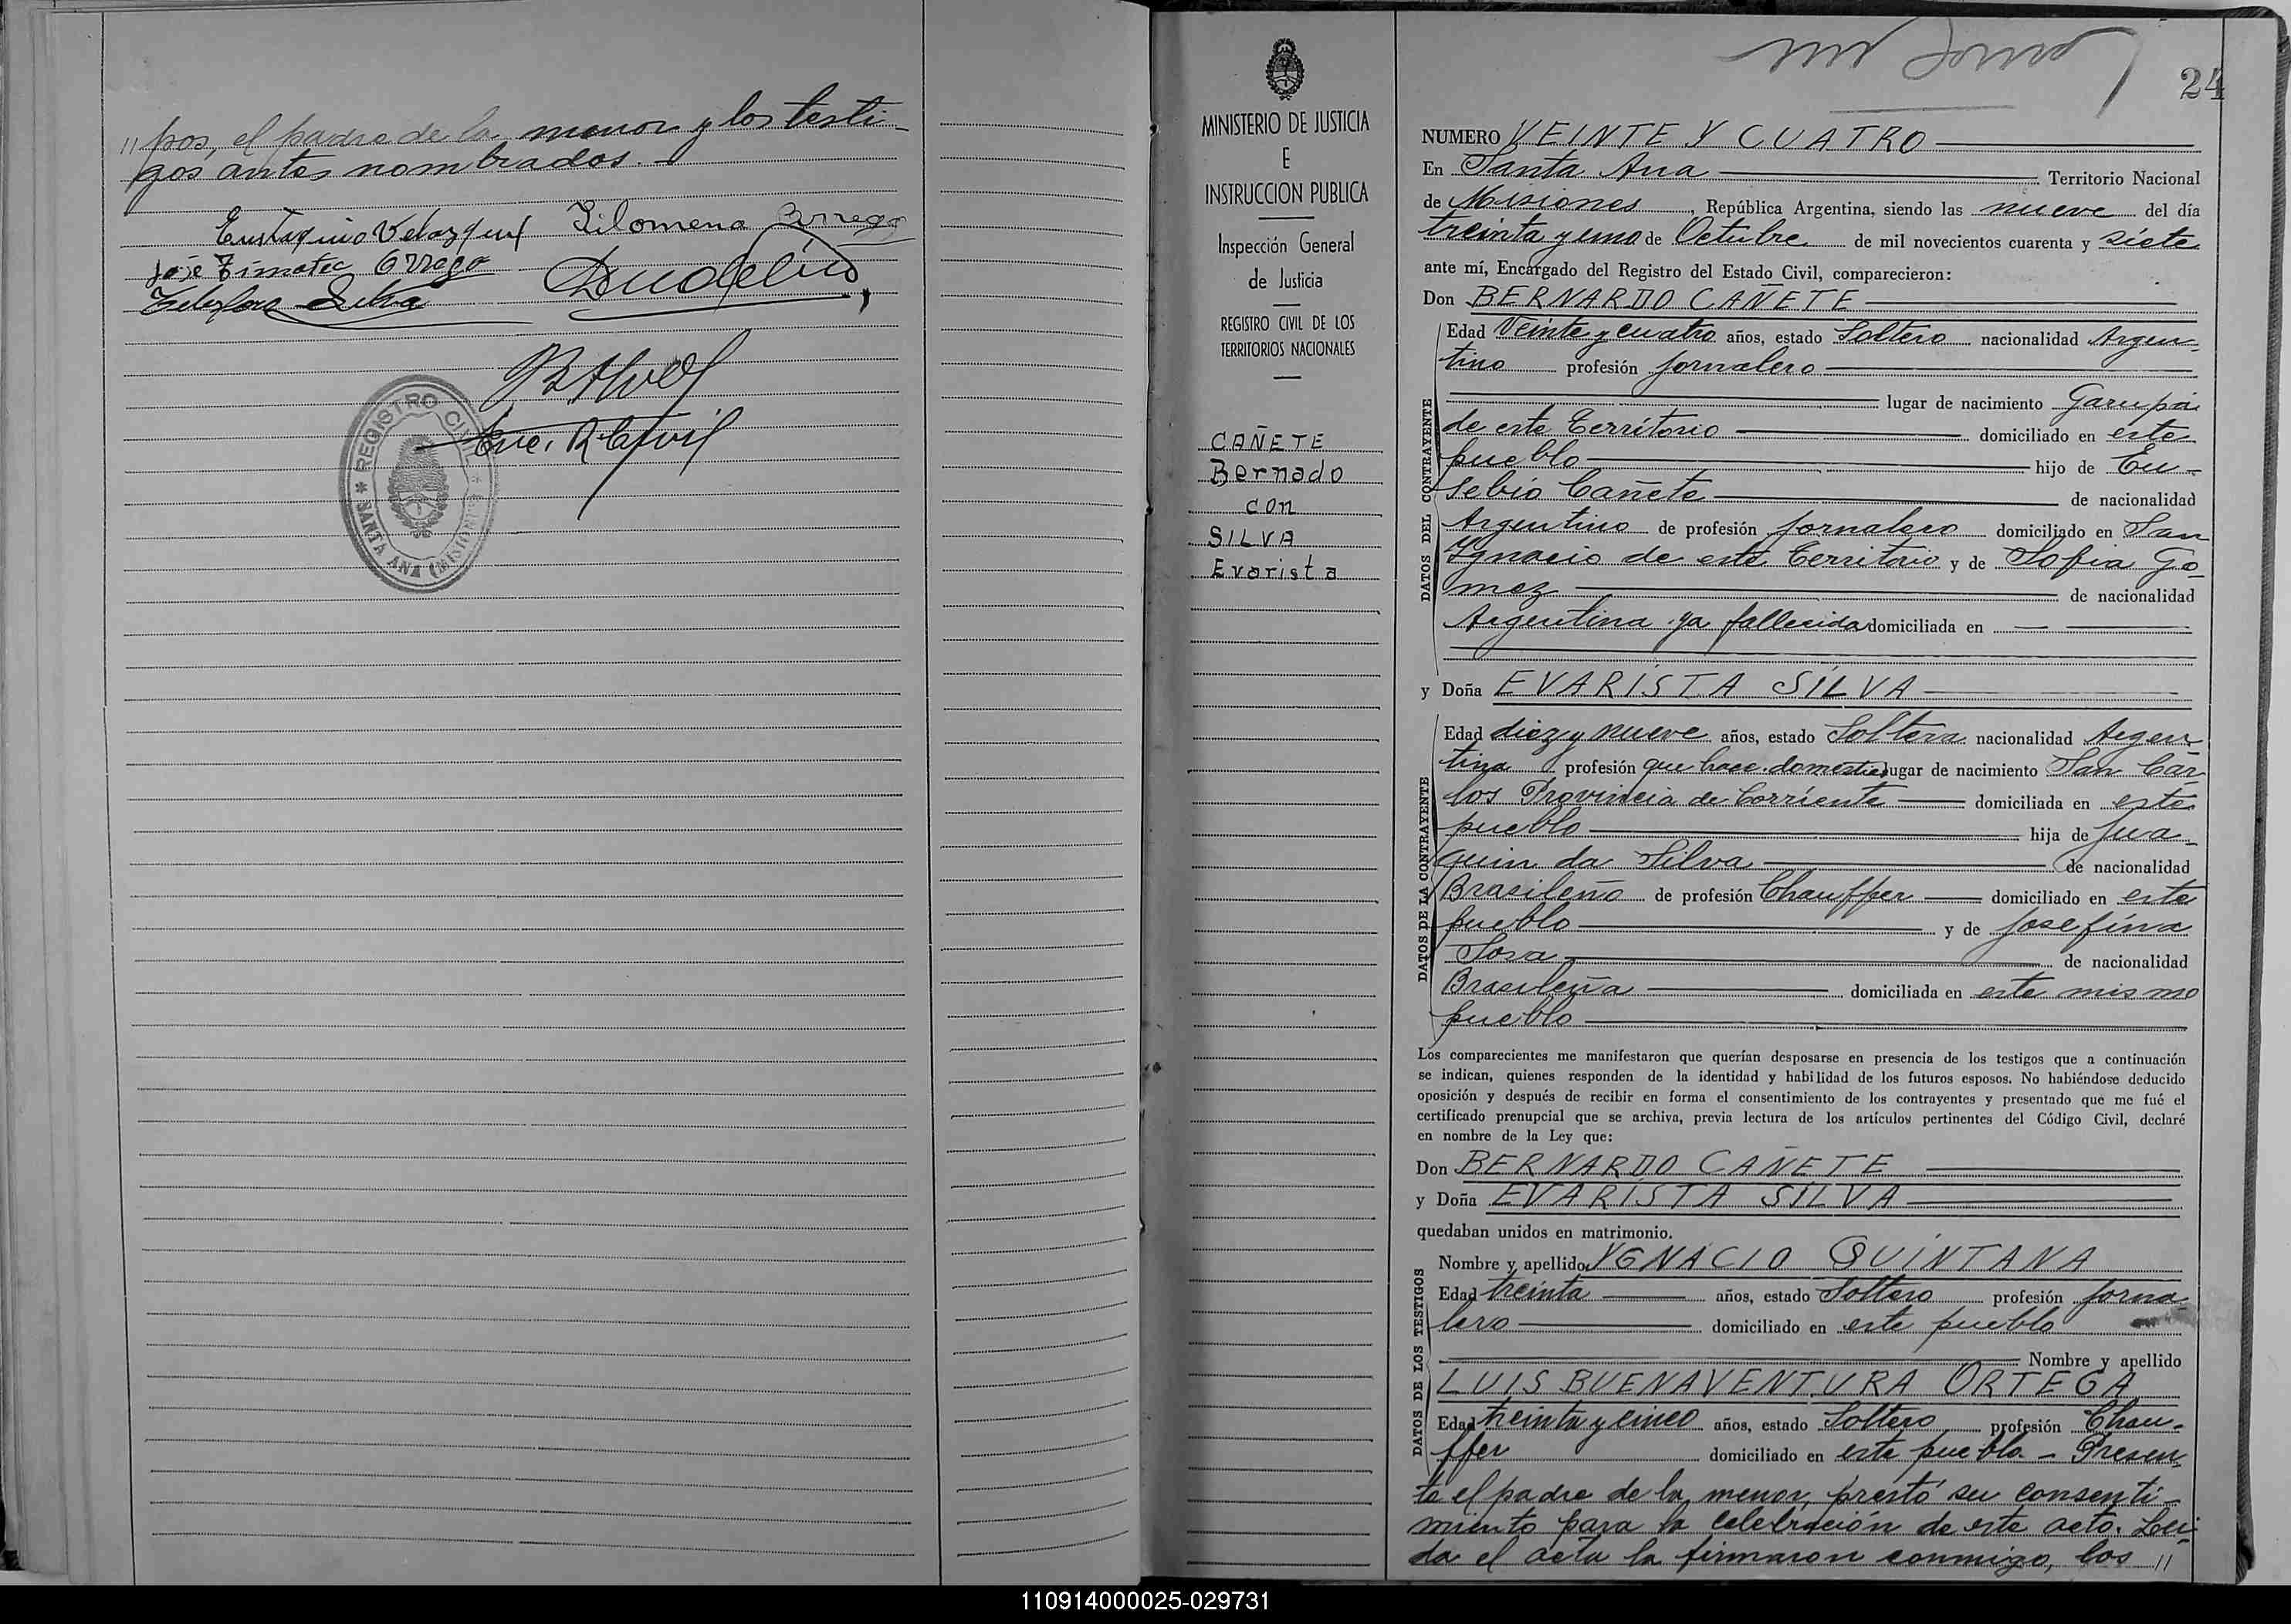 // pos, el padre de la menor y los testi-
gos antes nombrados.-
Eustaquio Velazquez Filomena Orrego
José Timoteo Orrego
Silva
Enc. R. Civil
* REGISTRO CIVIL *
SANTA ANA (MISIONES)
MINISTERIO DE JUSTICIA
E
INSTRUCCION PUBLICA
Inspección General
de Justicia
REGISTRO CIVIL DE LOS
TERRITORIOS NACIONALES
CAÑETE
Bernado
con
SILVA
Evarista
24
NUMERO VEINTE Y CUATRO
En Santa Ana Territorio Nacional
de Misiones, República Argentina, siendo las nueve del día
treinta y uno de Octubre de mil novecientos cuarenta y siete
ante mí, Encargado del Registro del Estado Civil, comparecieron:
Don BERNARDO CAÑETE
DATOS DEL CONTRAYENTE
Edad Veinte y cuatro años, estado Soltero nacionalidad Argen-
tino profesión jornalero
lugar de nacimiento Garupá
de este Territorio domiciliado en este
pueblo hijo de Eu-
sebio Cañete de nacionalidad
Argentino de profesión jornalero domiciliado en San
Ygnacio de este Territorio y de Sofia Go-
mez de nacionalidad
Argentina ya fallecida domiciliada en
y Doña EVARISTA SILVA
DATOS DE LA CONTRAYENTE
Edad diez y nueve años, estado Soltera nacionalidad Argen-
tina profesión que hace. domestica lugar de nacimiento San Car-
los Provincia de Corriente domiciliada en este
pueblo hija de Jua-
quin da Silva de nacionalidad
Brasileño de profesión Chauffer domiciliado en este
pueblo y de Josefina
Sosa de nacionalidad
Brasileña domiciliada en este mismo
pueblo
Los comparecientes me manifestaron que querían desposarse en presencia de los testigos que a continuación
se indican, quienes responden de la identidad y habilidad de los futuros esposos. No habiéndose deducido
oposición y después de recibir en forma el consentimiento de los contrayentes y presentado que me fué el
certificado prenupcial que se archiva, previa lectura de los artículos pertinentes del Código Civil, declaré
en nombre de la Ley que:
Don BERNARDO CAÑETE
y Doña EVARISTA SILVA
quedaban unidos en matrimonio.
DATOS DE LOS TESTIGOS
Nombre y apellido YGNACIO QUINTANA
Edad treinta años, estado Soltero profesión jorna-
lero domiciliado en este pueblo
Nombre y apellido
LUIS BUENAVENTURA ORTEGA
Edad treinta y cinco años, estado Soltero profesión Chau-
ffer domiciliado en este pueblo.- Presen-
te el padre de la menor, prestó su consenti-
miento para la celebración de este acto. Lei-
da el acta la firmaron conmigo, los //
110914000025-029731